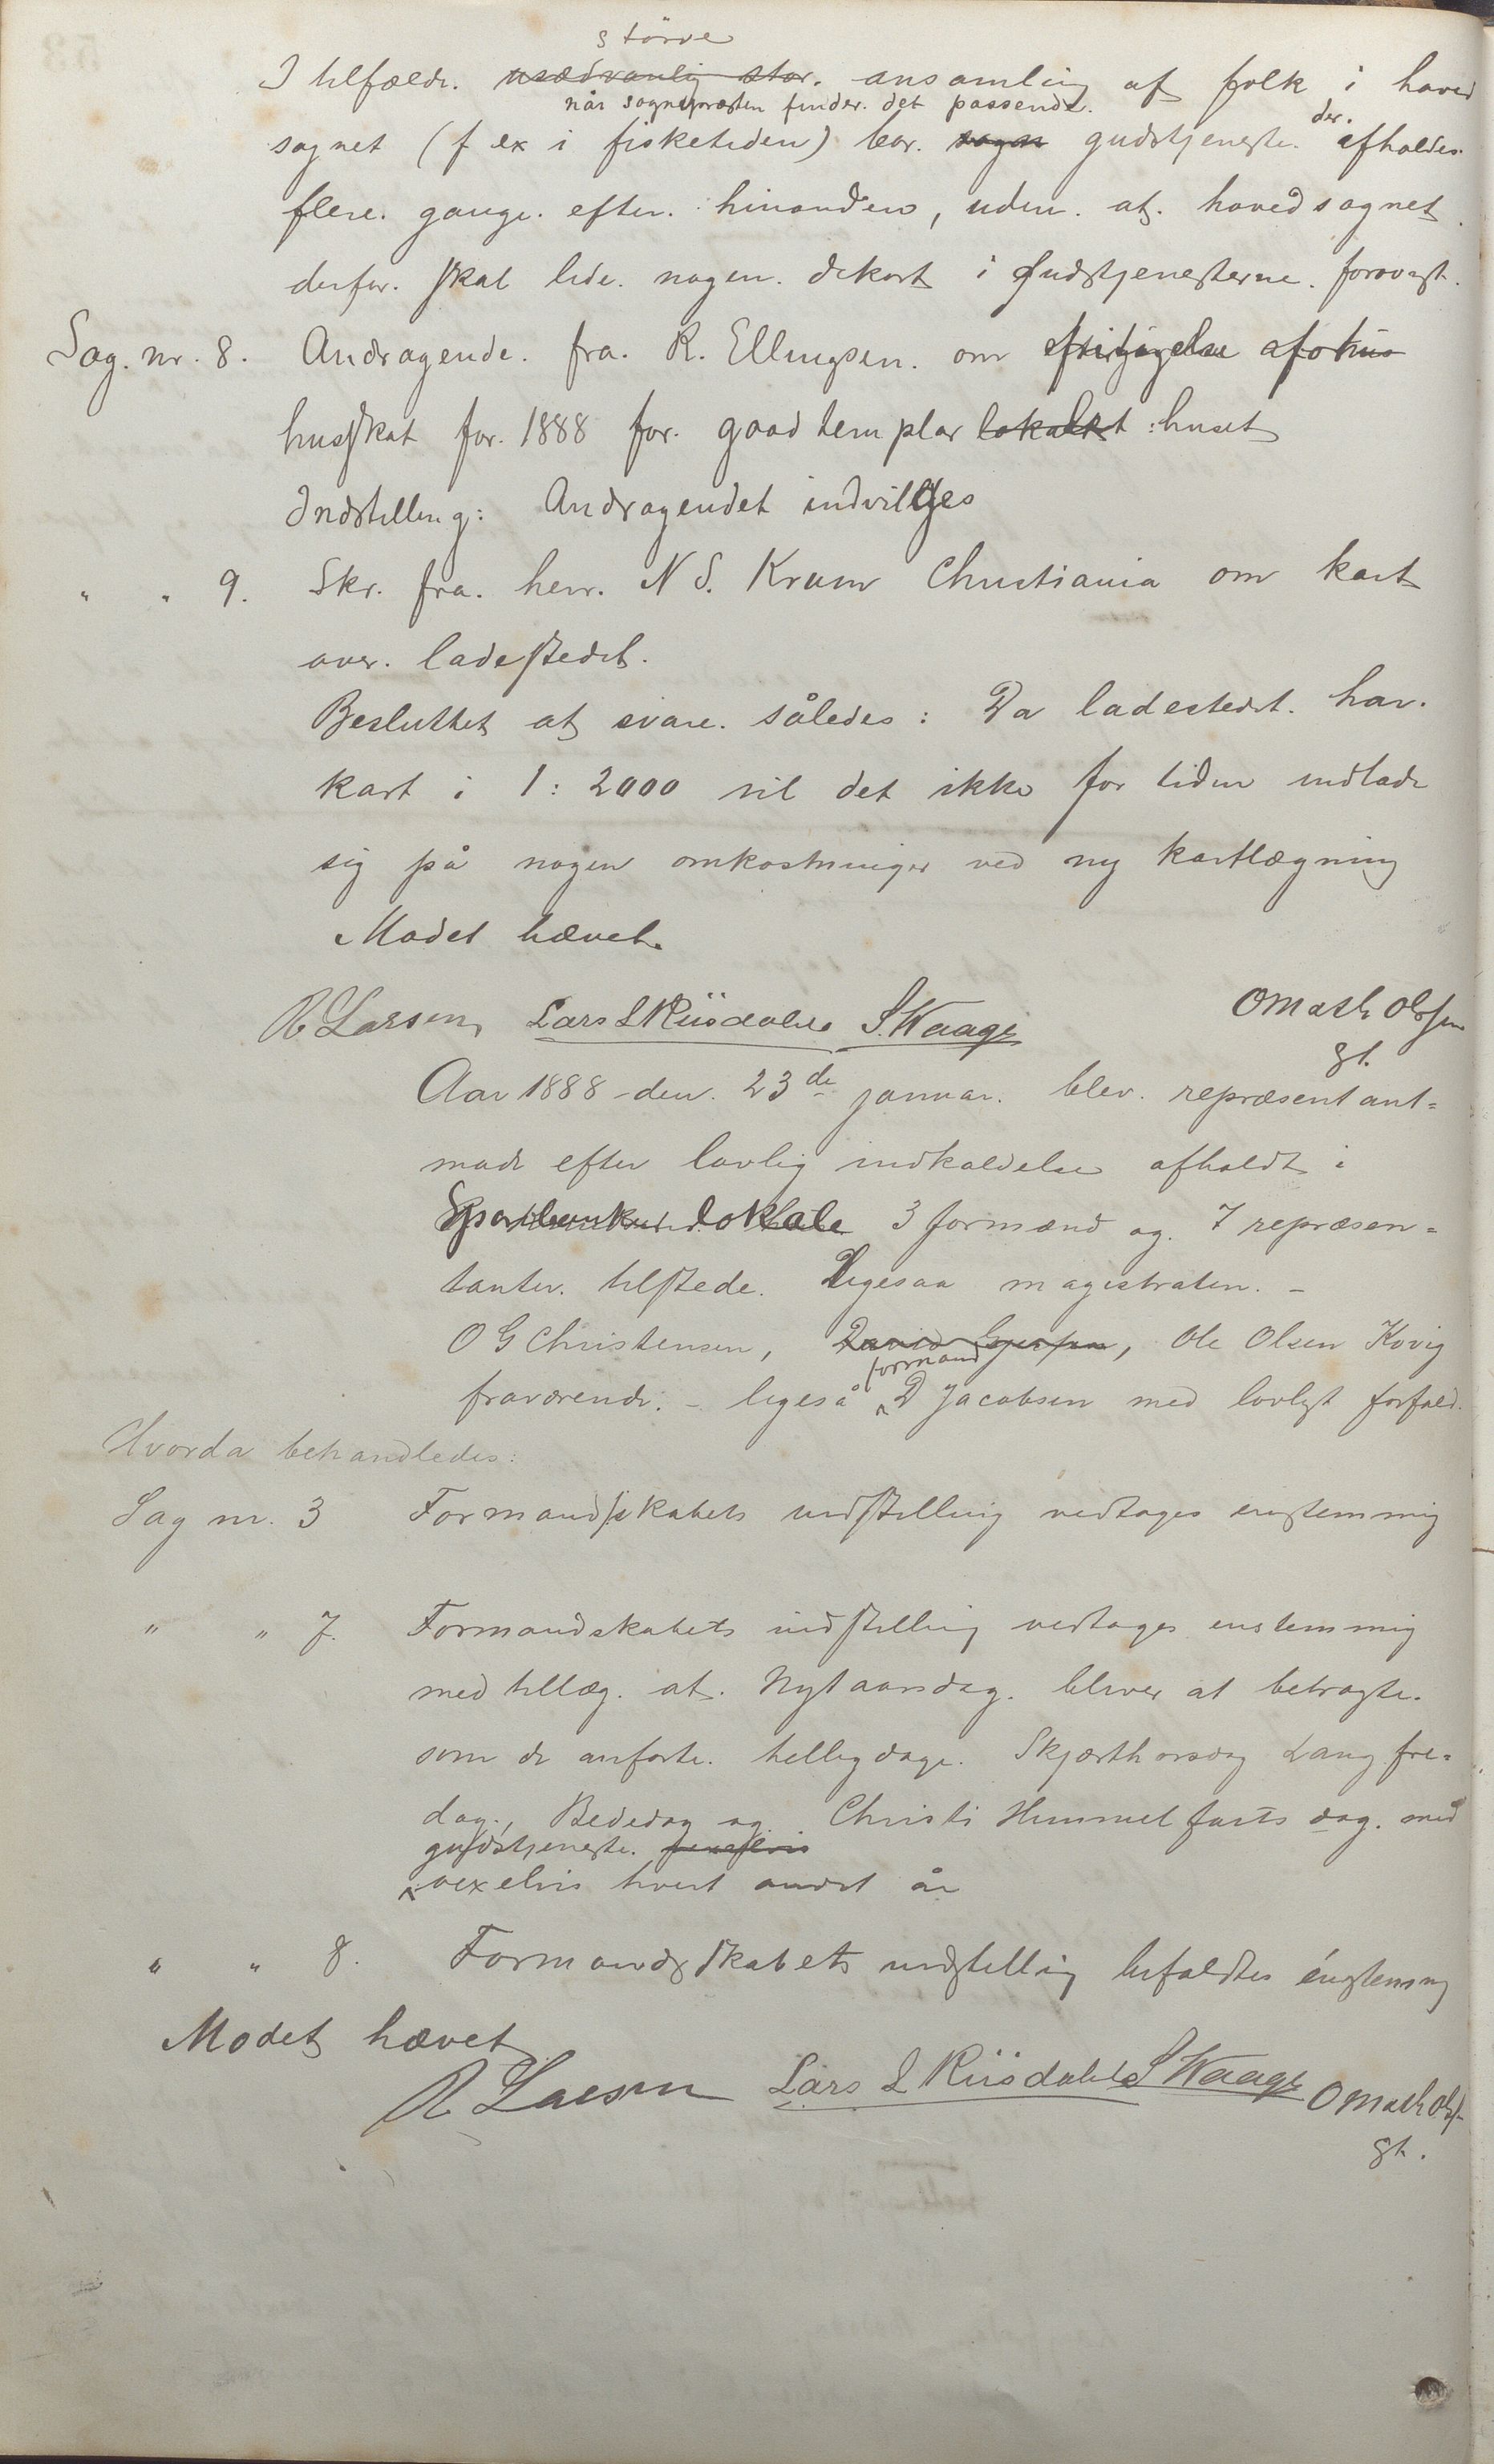 större
I tilfælde usædvanlig stor ansamling af folk i hoved
når sognepræsten finder det passende.
sognet (f ex i fisketiden) bør sogn gudstjeneste der afholdes
flere gange efter hinanden, uden at hovedsognet
derfor skal lide nogen dekort i Gudstjenesterne forøvrigt.
Sag nr. 8. Andragende fra R. Ellingsen om
husskat for 1888 for goodtemplar lokalet : huset
Indstilling: Andragendet indvilges
" " 9. Skr. fra herr N S. Krum Christiania om kart
over ladestedet.
Besluttet at svare således: Da ladestedet har
kart i 1:2000 vil det ikke for tiden indlade
sig på nogen omkostninger ved ny kartlægning
Mødet hævet.
R Larsen Lars L Riisdahl S. Waage O Math Olsen
gt.
Aar 1888 den 23de januar blev repræsentant-
møde efter lovlig indkaldelse afholdt i
Sparebankens lokale 3 formænd og 7 repræsen-
tanter tilstede. Ligesaa magistraten. -
O G Christensen, David, Ole Olsen Kovig
formand
fraværende. - ligeså D Jacobsen med lovligt forfald.
Hvorda behandledes:
Sag nr. 3 Formandskabets indstilling vedtoges enstemmig
" " 7. Formandskabets indstilling vedtoges enstemmig
med tillæg at Nytaarsdag bliver at betragte
som de anførte helligdage. Skjærthorsdag Langfre-
dag, Bededag og Christi Himmelfarts dag med
gudstjeneste vexelvis
vexelvis hvert andet år
" " 8. Formandskabets indstilling bifaldtes énstemmig
Mødet hævet
R Larsen Lars L Riisdahl S Waage O Math Ols
gt.